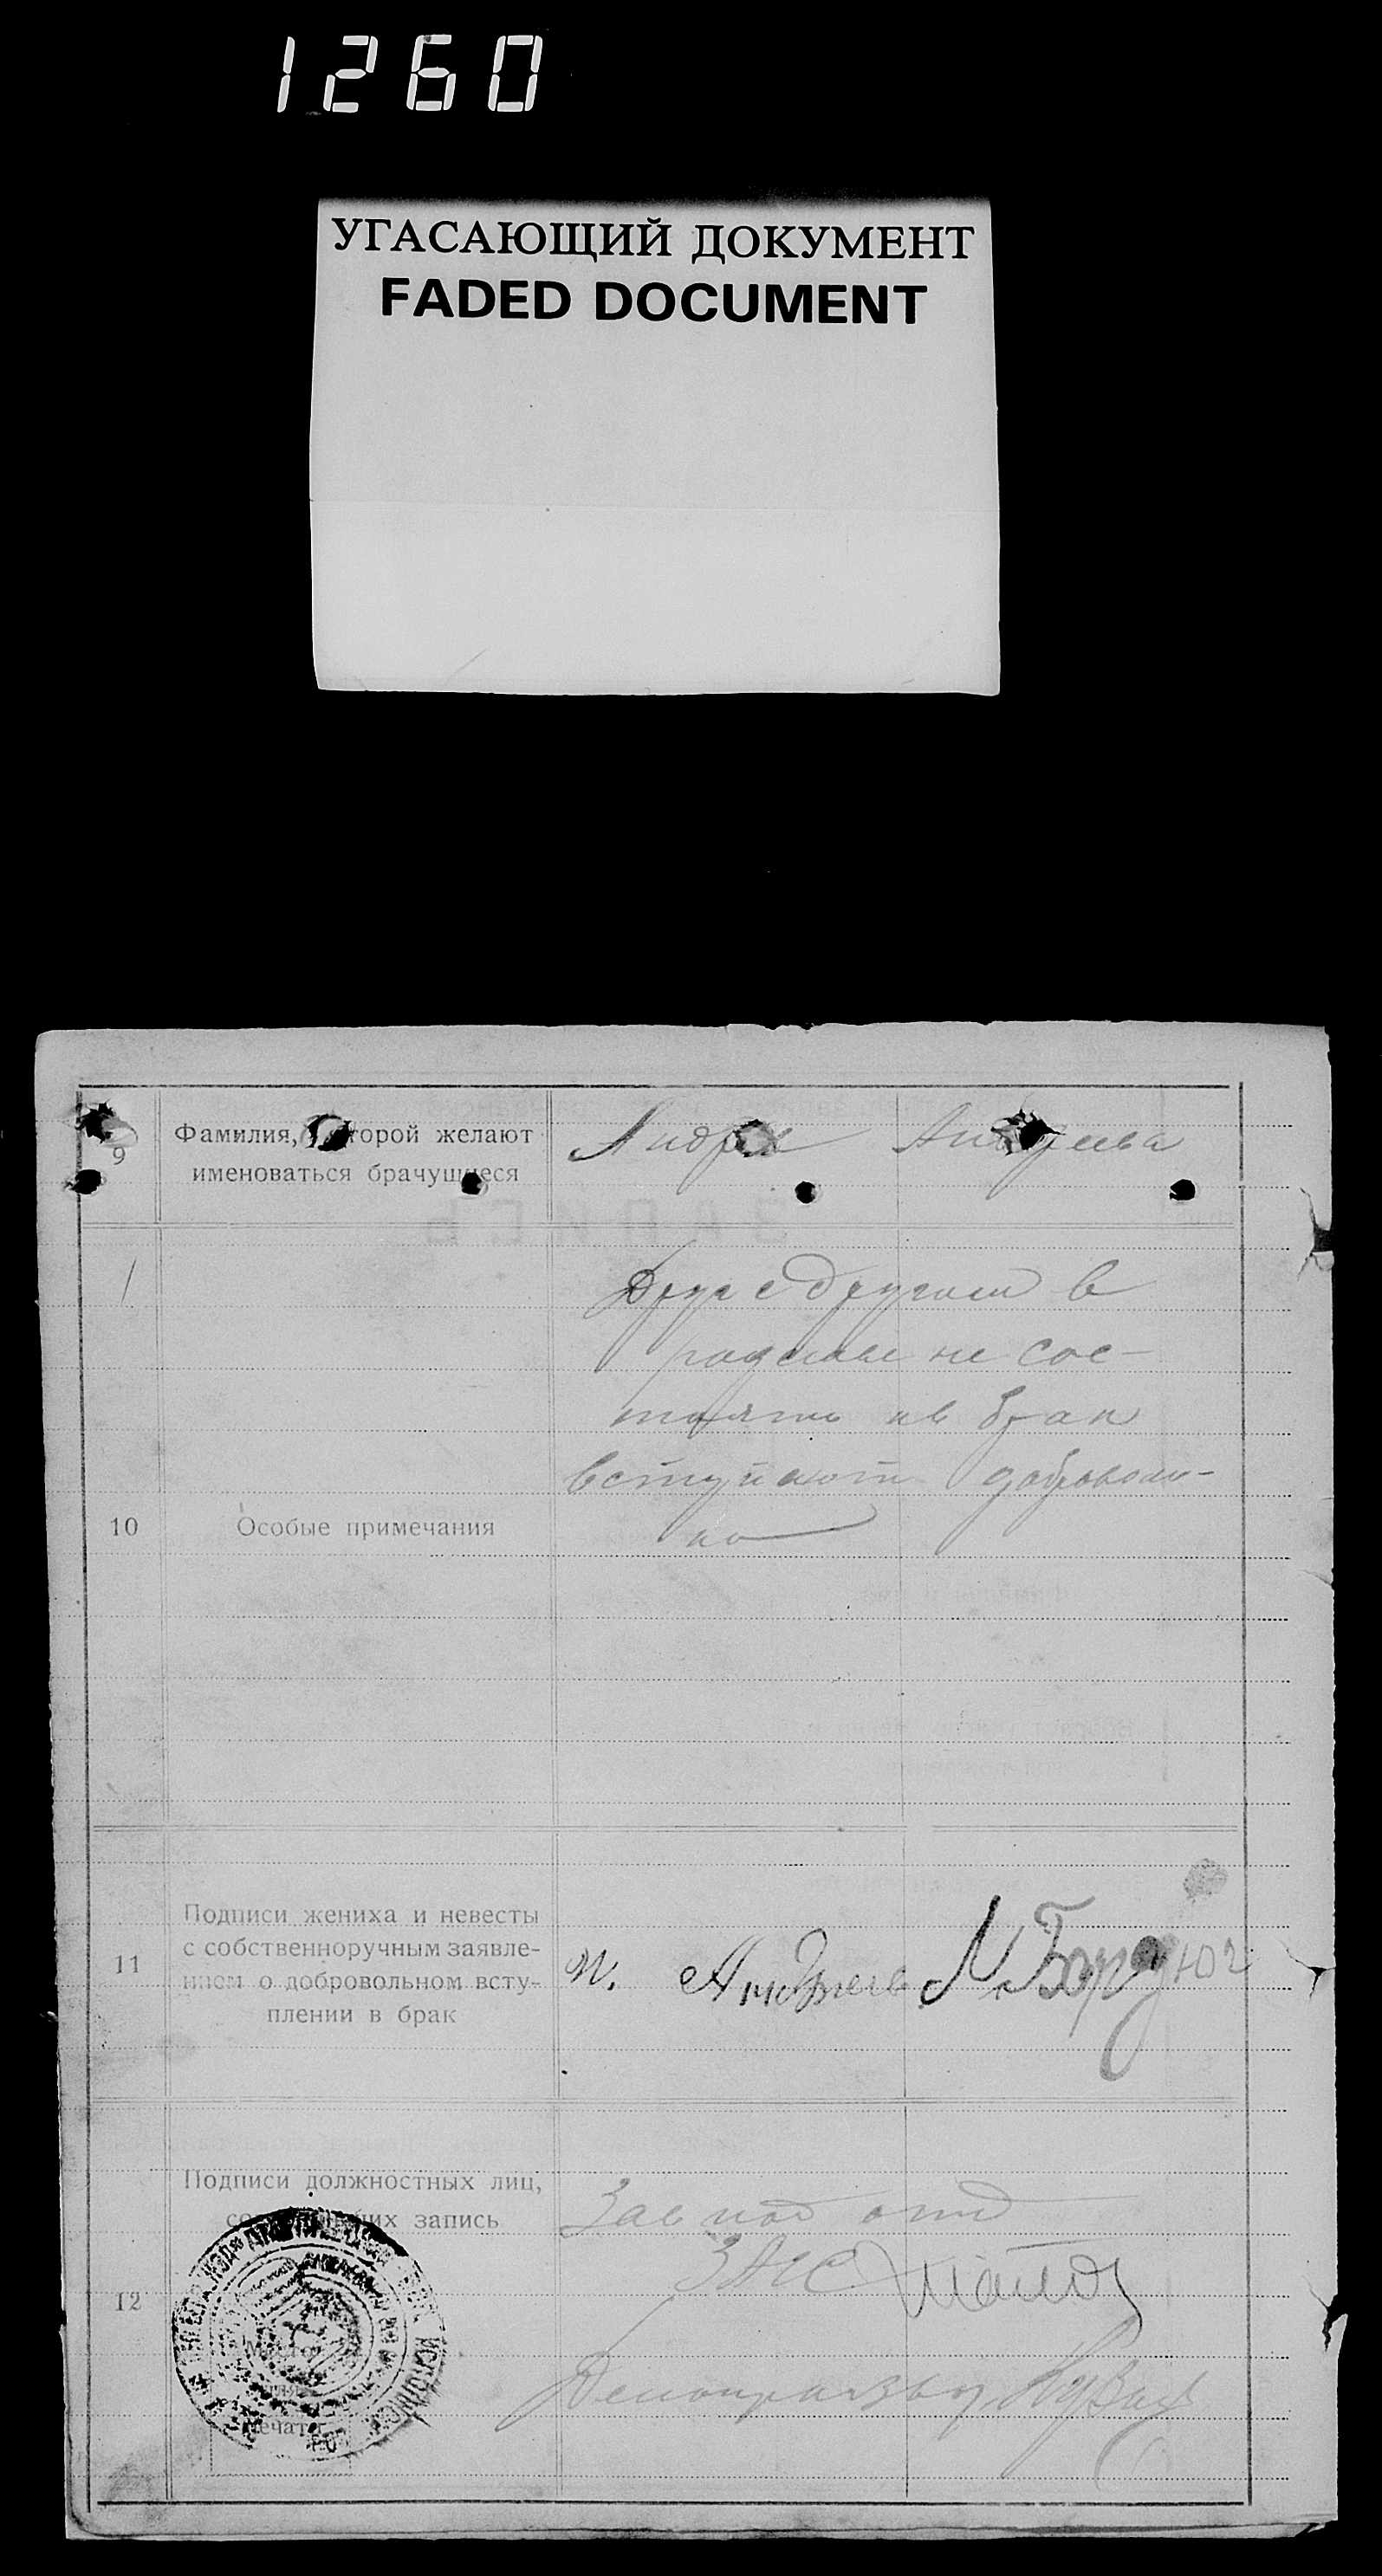 1260
УГАСАЮЩИЙ ДОКУМЕНТ
FADED DOCUMENT
9
Фамилия, которой желают
именоваться брачущиеся
Андреев Андреева
10
Особые примечания
Друг с другом в
родстве не сос-
тоят и в брак
вступают доброволь-
но
11
Подписи жениха и невесты
с собственноручным заявле-
нием о добровольном всту-
плении в брак
Андреев
12
Подписи должностных лиц,
запись
Зав под отд
ЗАГС
Делопроизвод
печати